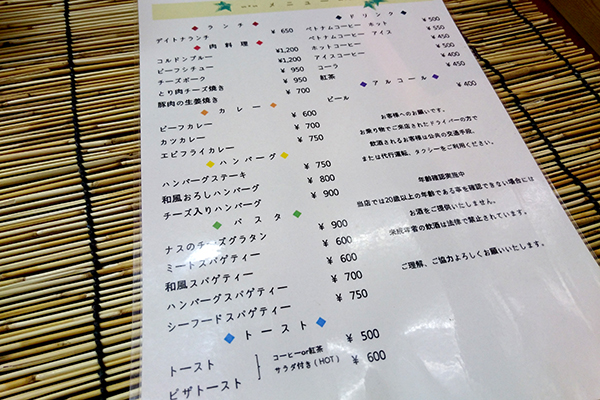 メニュー
◆ ランチ ◆
デイトナランチ ¥ 650
◆ 肉料理 ◆
コルドンブルー ¥1,200
ビーフシチュー ¥1,200
チーズポーク ¥ 950
とり肉チーズ焼き ¥ 950
豚肉の生姜焼き ¥ 700
◆ カレー ◆
ビーフカレー ¥ 600
カツカレー ¥ 700
エビフライカレー ¥ 750
◆ ハンバーグ ◆
ハンバーグステーキ ¥ 750
和風おろしハンバーグ ¥ 800
チーズ入りハンバーグ ¥ 900
◆ パスタ ◆
ナスのチーズグラタン ¥ 900
ミートスパゲティー ¥ 600
和風スパゲティー ¥ 600
ハンバーグスパゲティー ¥ 700
シーフードスパゲティー ¥ 750
◆ トースト ◆
トースト ¥ 500
ピザトースト ¥ 600
コーヒーor紅茶
サラダ付き(HOT)
◆ ドリンク ◆
ベトナムコーヒー ホット ¥ 500
ベトナムコーヒー アイス ¥ 550
ホットコーヒー ¥ 400
アイスコーヒー ¥ 450
コーラ ¥ 400
紅茶 ¥ 450
◆ アルコール ◆
ビール ¥ 400
お客様へのお願いです。
お乗り物でご来店されたドライバーの方で
飲酒されるお客様は公共の交通手段、
または代行運転、タクシーをご利用ください。
年齢確認実施中
当店では20歳以上の年齢である事を確認できない場合には
お酒をご提供いたしません。
未成年者の飲酒は法律で禁止されています。
ご理解、ご協力よろしくお願いいたします。